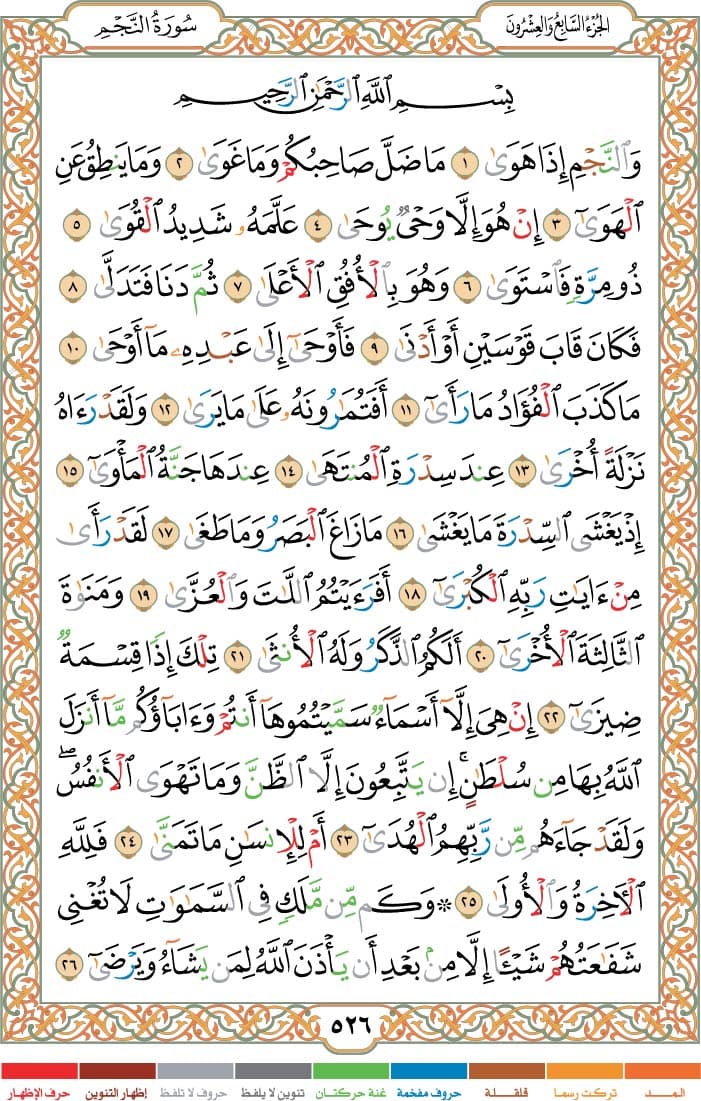 الجُزْءُ السَّابِعُ وَالعِشْرُونَ
سُورَةُ النَّجْمِ
بِسْمِ ٱللَّهِ ٱلرَّحْمَٰنِ ٱلرَّحِيمِ
وَٱلنَّجْمِ إِذَا هَوَىٰ ١ مَا ضَلَّ صَاحِبُكُمْ وَمَا غَوَىٰ ٢ وَمَا يَنطِقُ عَنِ
ٱلْهَوَىٰٓ ٣ إِنْ هُوَ إِلَّا وَحْىٌ يُوحَىٰ ٤ عَلَّمَهُۥ شَدِيدُ ٱلْقُوَىٰ ٥
ذُو مِرَّةٍ فَٱسْتَوَىٰ ٦ وَهُوَ بِٱلْأُفُقِ ٱلْأَعْلَىٰ ٧ ثُمَّ دَنَا فَتَدَلَّىٰ ٨
فَكَانَ قَابَ قَوْسَيْنِ أَوْ أَدْنَىٰ ٩ فَأَوْحَىٰٓ إِلَىٰ عَبْدِهِۦ مَآ أَوْحَىٰ ١٠
مَا كَذَبَ ٱلْفُؤَادُ مَا رَأَىٰٓ ١١ أَفَتُمَٰرُونَهُۥ عَلَىٰ مَا يَرَىٰ ١٢ وَلَقَدْ رَءَاهُ
نَزْلَةً أُخْرَىٰ ١٣ عِندَ سِدْرَةِ ٱلْمُنتَهَىٰ ١٤ عِندَهَا جَنَّةُ ٱلْمَأْوَىٰٓ ١٥
إِذْ يَغْشَى ٱلسِّدْرَةَ مَا يَغْشَىٰ ١٦ مَا زَاغَ ٱلْبَصَرُ وَمَا طَغَىٰ ١٧ لَقَدْ رَأَىٰ
مِنْ ءَايَٰتِ رَبِّهِ ٱلْكُبْرَىٰٓ ١٨ أَفَرَءَيْتُمُ ٱللَّٰتَ وَٱلْعُزَّىٰ ١٩ وَمَنَوٰةَ
ٱلثَّالِثَةَ ٱلْأُخْرَىٰٓ ٢٠ أَلَكُمُ ٱلذَّكَرُ وَلَهُ ٱلْأُنثَىٰ ٢١ تِلْكَ إِذًا قِسْمَةٌ
ضِيزَىٰٓ ٢٢ إِنْ هِىَ إِلَّآ أَسْمَآءٌ سَمَّيْتُمُوهَآ أَنتُمْ وَءَابَآؤُكُم مَّآ أَنزَلَ
ٱللَّهُ بِهَا مِن سُلْطَٰنٍ ۚ إِن يَتَّبِعُونَ إِلَّا ٱلظَّنَّ وَمَا تَهْوَى ٱلْأَنفُسُ ۖ
وَلَقَدْ جَآءَهُم مِّن رَّبِّهِمُ ٱلْهُدَىٰٓ ٢٣ أَمْ لِلْإِنسَٰنِ مَا تَمَنَّىٰ ٢٤ فَلِلَّهِ
ٱلْءَاخِرَةُ وَٱلْأُولَىٰ ٢٥ ۞ وَكَم مِّن مَّلَكٍ فِى ٱلسَّمَٰوَٰتِ لَا تُغْنِى
شَفَٰعَتُهُمْ شَيْـًٔا إِلَّا مِنۢ بَعْدِ أَن يَأْذَنَ ٱللَّهُ لِمَن يَشَآءُ وَيَرْضَىٰٓ ٢٦
٥٢٦
المــــد تركت رسما قلقـلـة حروف مفخمة غنة حركتـان تنوين لا يلفظ حروف لا تلفظ إظهار التنوين حرف الإظهار